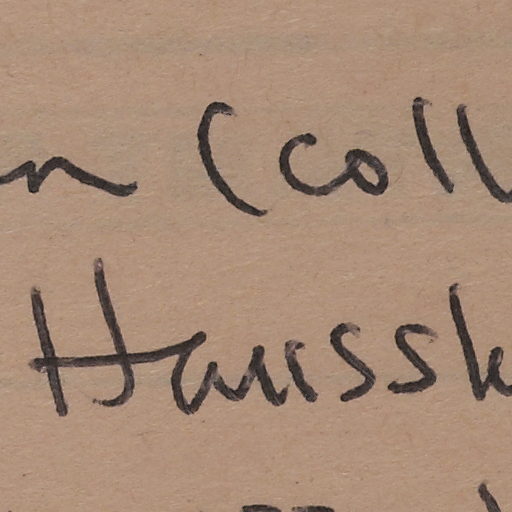 n (coll
Haussk